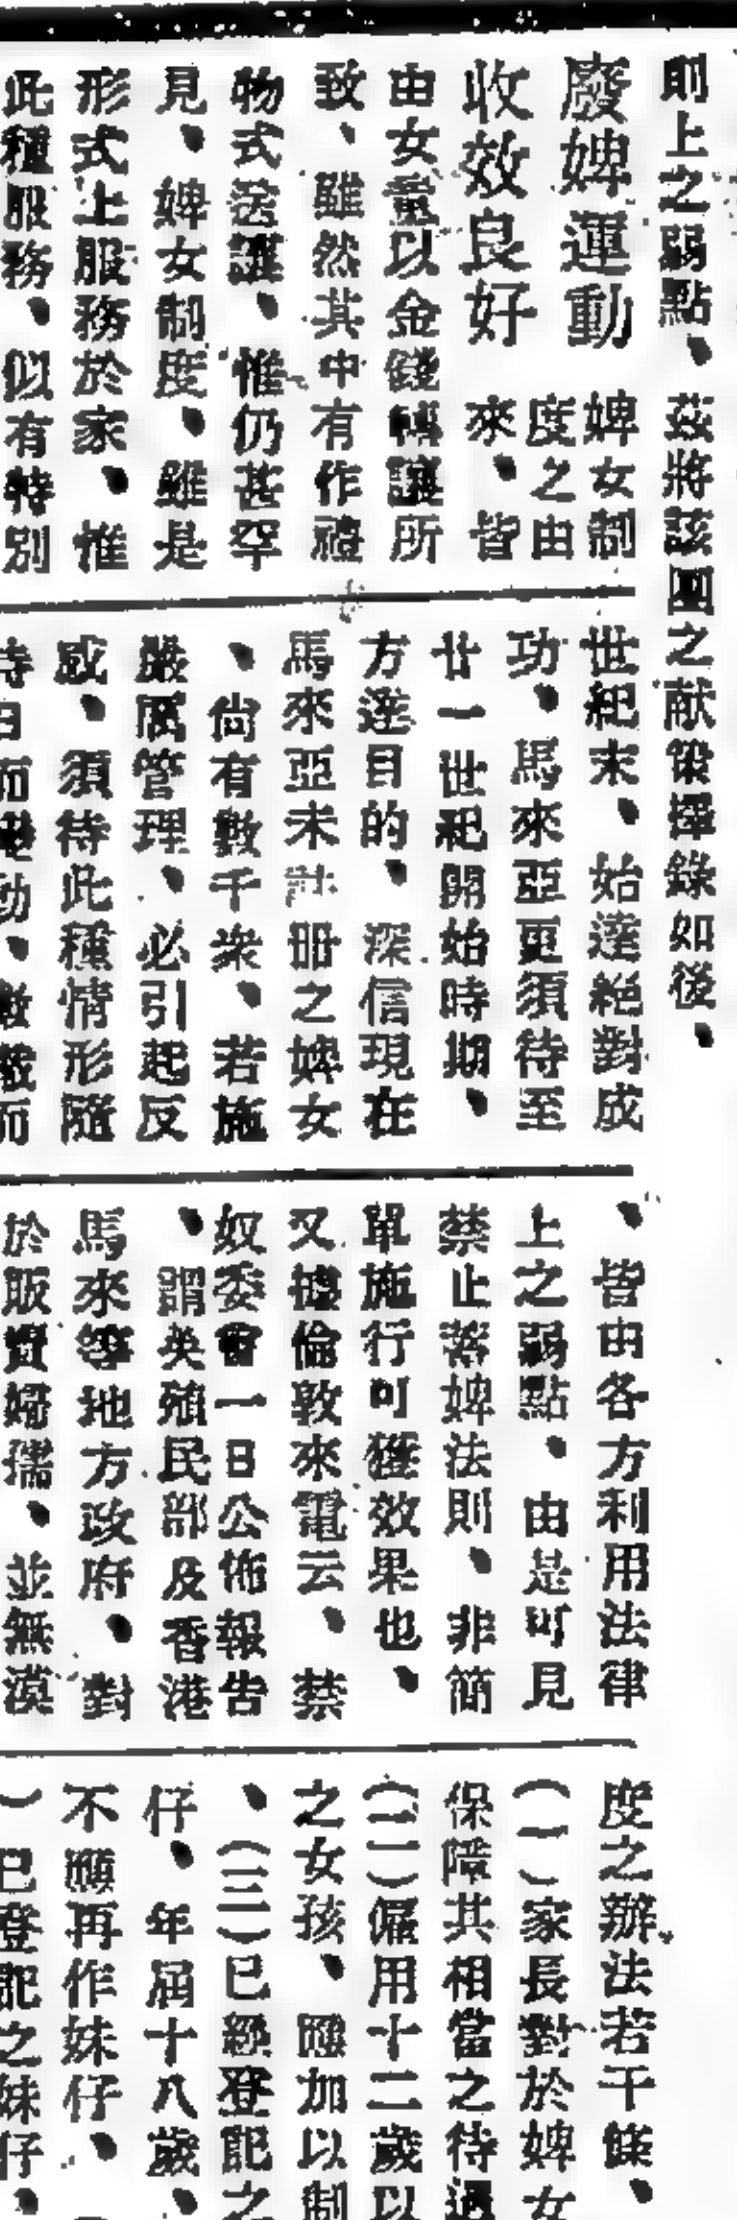 則上之弱點、茲將該團之献策擇錄如後、
廢婢運動
收效良好
婢女制
度之由
來、皆
由女童以金錢轉讓所
致、雖然其中有作禮
物式送讓、惟仍甚罕
見、婢女制度、雖是
形式上服務於家、惟
此種服務、似有特別
世紀末、始達絕對成
功、馬來亞更須待至
廿一世紀開始時期、
方達目的、深信現在
馬來亞未註册之婢女
、尙有數千衆、若施
嚴厲管理、必引起反
感、須待此種情形隨
時日而變動、
而
、皆由各方利用法律
上之弱點、由是可見
禁止蓄婢法則、非簡
單施行可獲效果也、
又據倫敦來電云、禁
奴委會一日公佈報告
、謂英殖民部及香港
馬來等地方政府、對
於販賣婦孺、並無漠
度之辦法若干條、
（一）家長對於婢女
保障其相當之待遇
（二）僱用十二歲以
之女孩、應加以制
、（三）已經登記之
仔、年屆十八歲、
不願再作妹仔、
）已登記之妹仔、